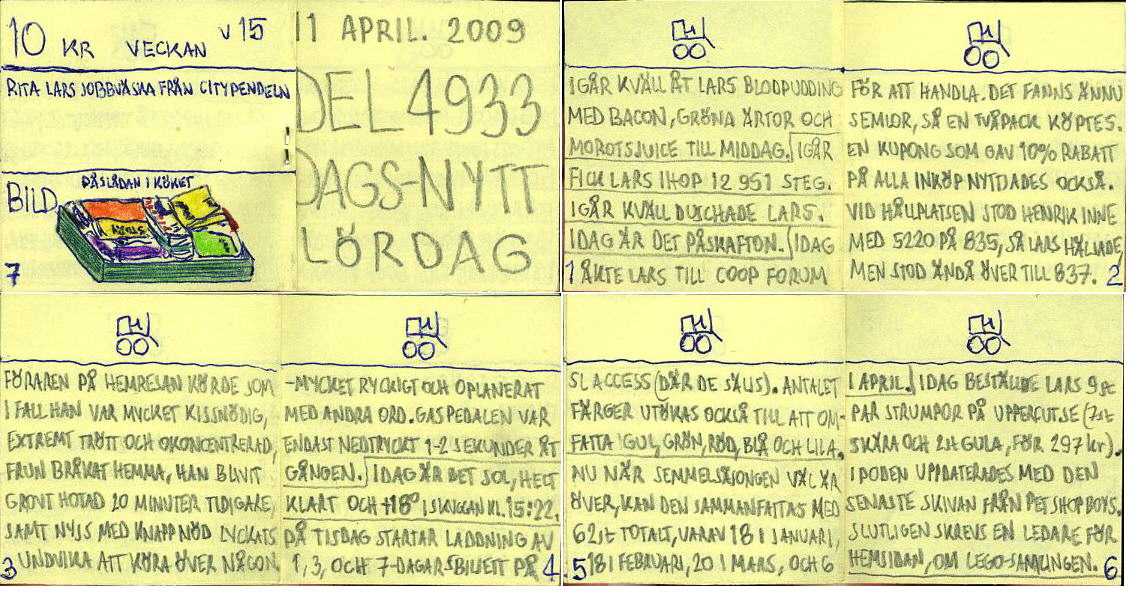 10 KR VECKAN V 15
RITA LARS JOBBVÄSKA FRÅN CITYPENDELN
BILD
PÅSLÅDAN I KÖKET
7
11 APRIL. 2009
DEL 4933
DAGS-NYTT
LÖRDAG
IGÅR KVÄLL ÅT LARS BLODPUDDING
MED BACON, GRÖNA ÄRTOR OCH
MOROTSJUICE TILL MIDDAG. IGÅR
FICK LARS IHOP 12 951 STEG.
IGÅR KVÄLL DUSCHADE LARS.
IDAG ÄR DET PÅSKAFTON. IDAG
1 ÅKTE LARS TILL COOP FORUM
FÖR ATT HANDLA. DET FANNS ÄNNU
SEMLOR, SÅ EN TVÅPACK KÖPTES.
EN KUPONG SOM GAV 10% RABATT
PÅ ALLA INKÖP NYTTJADES OCKSÅ.
VID HÅLLPLATSEN STOD HENRIK INNE
MED 5220 PÅ 835, SÅ LARS HÄLSADE,
MEN STOD ÄNDÅ ÖVER TILL 837. 2
FÖRAREN PÅ HEMRESAN KÖRDE SOM
I FALL HAN VAR MYCKET KISSNÖDIG,
EXTREMT TRÖTT OCH OKONCENTRERAD,
FRUN BRÅKAT HEMMA, HAN BLIVIT
GROVT HOTAD 20 MINUTER TIDIGARE,
SAMT NYSS MED KNAPP NÖD LYCKATS
3 UNDVIKA ATT KÖRA ÖVER NÅGON.
-MYCKET RYCKIGT OCH OPLANERAT
MED ANDRA ORD. GASPEDALEN VAR
ENDAST NEDTRYCKT 1-2 SEKUNDER ÅT
GÅNGEN. IDAG ÄR DET SOL, HELT
KLART OCH +18° I SKUGGAN KL. 15:22.
PÅ TISDAG STARTAR LADDNING AV
1, 3, OCH 7-DAGARSBILJETT PÅ 4
SL ACCESS (DÄR DE SÄLJS). ANTALET
FÄRGER UTÖKAS OCKSÅ TILL ATT OM-
FATTA GUL, GRÖN, RÖD, BLÅ OCH LILA.
NU NÄR SEMMELSÄSONGEN VÄL ÄR
ÖVER, KAN DEN SAMMANFATTAS MED
62st TOTALT, VARAV 18 I JANUARI,
5 18 I FEBRUARI, 20 I MARS, OCH 6
I APRIL. IDAG BESTÄLLDE LARS 9st
PAR STRUMPOR PÅ UPPERCUT.SE (7st
SKÄRA OCH 2st GULA, FÖR 297 kr).
IPODEN UPPDATERADES MED DEN
SENASTE SKIVAN FRÅN PET SHOP BOYS.
SLUTLIGEN SKREVS EN LEDARE FÖR
HEMSIDAN, OM LEGO-SAMLINGEN. 6